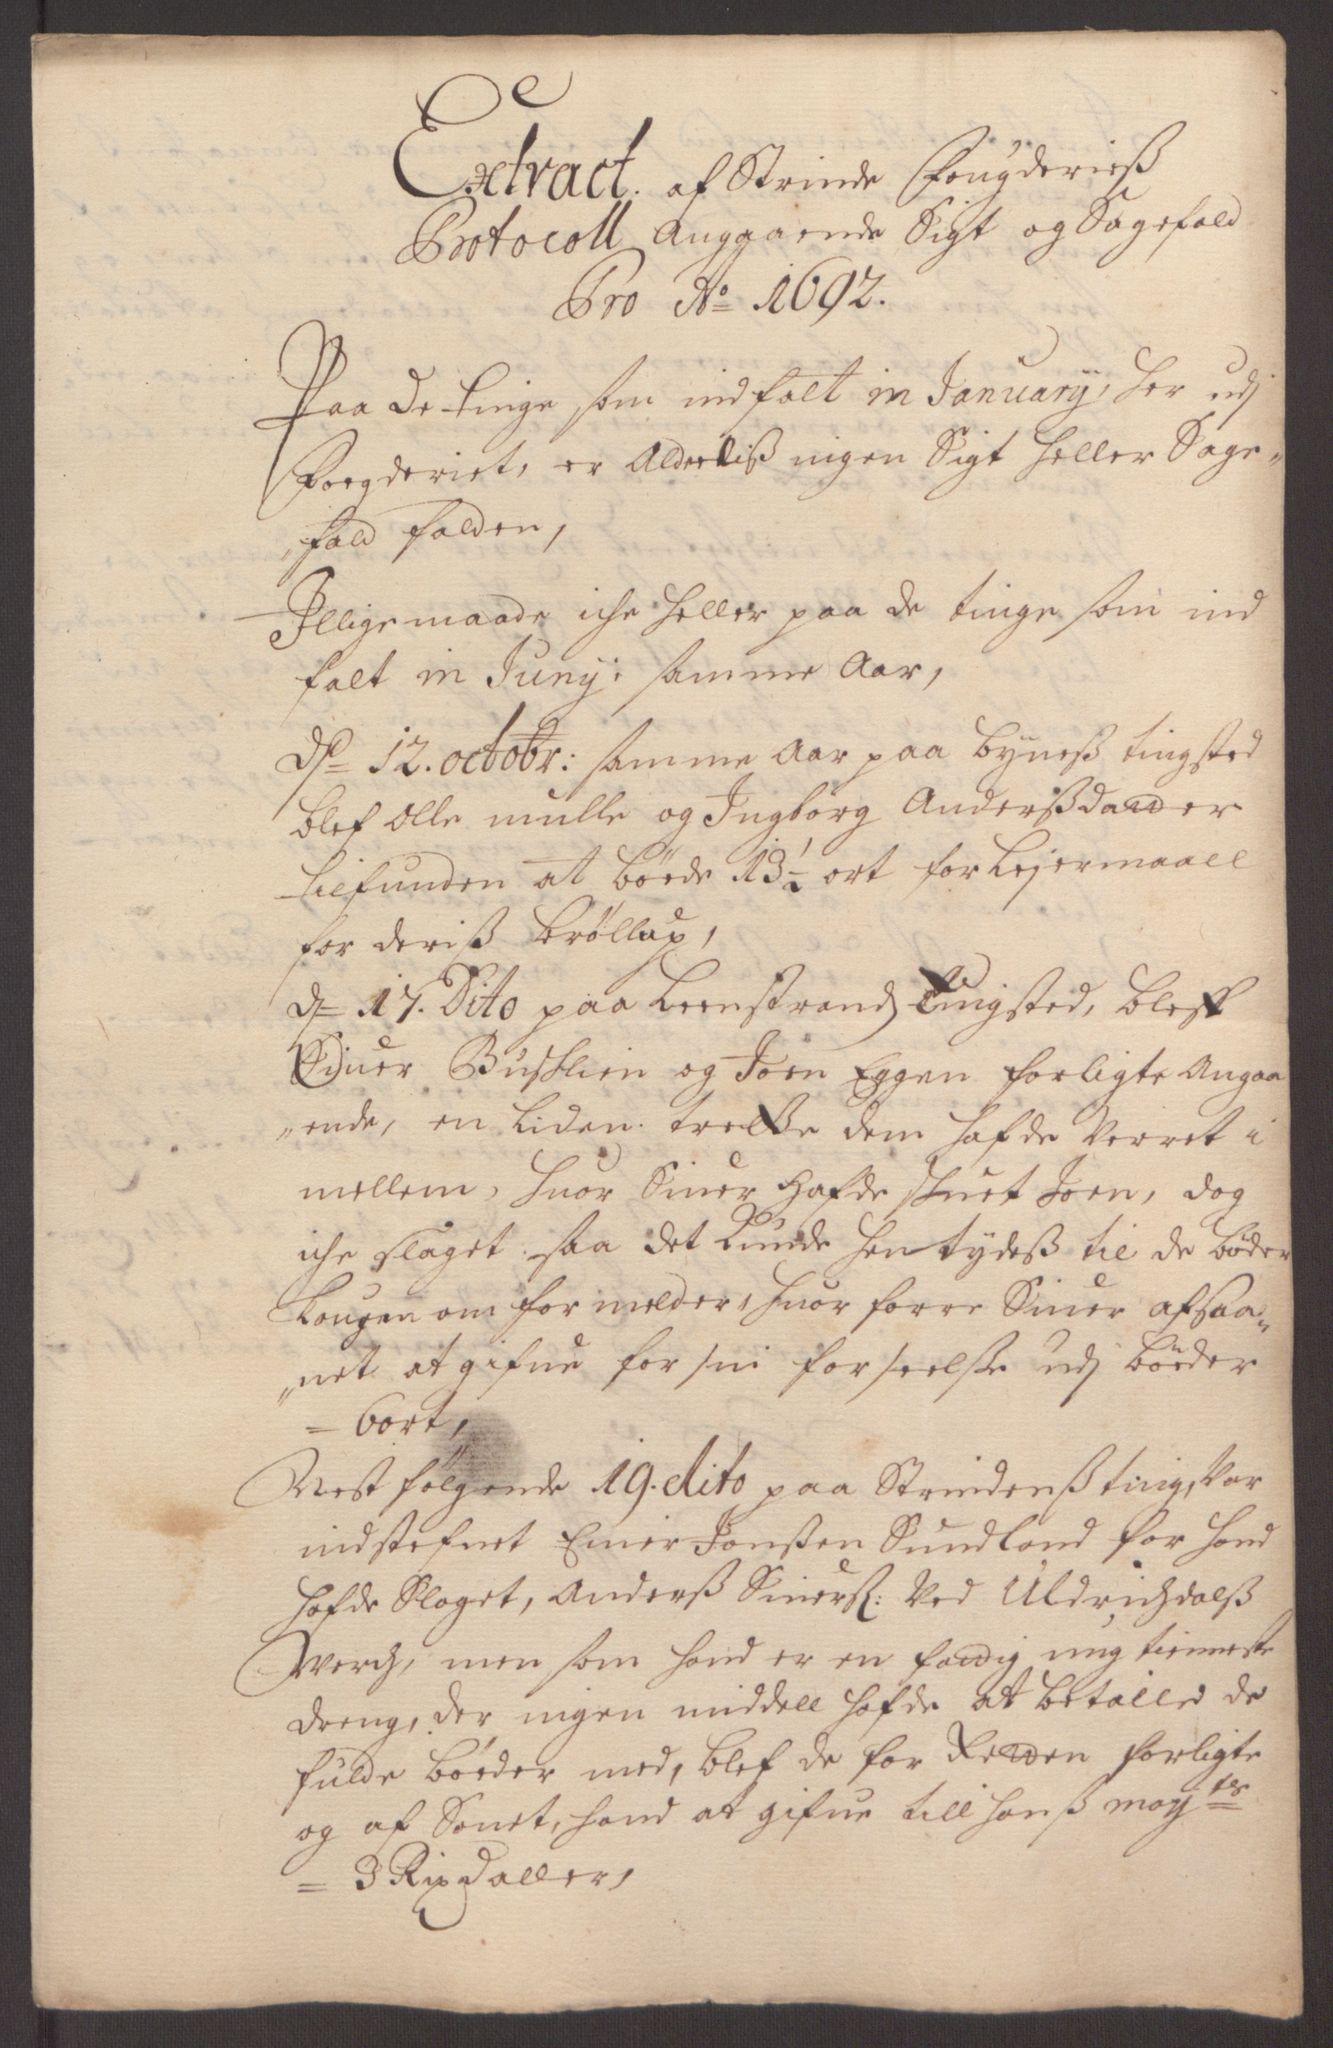 Extract. af Strinde Fougderieß
Protocoll Anggaende Sigt og Sagefald
Pro Ao 1692.
Paa De tinge som indfalt in January, her udj
Foegderiet, er Alderliß ingen Sigt heller Sage„
„fald falden,
Illigemaade iche heller paa de tinge som ind
falt in Junij: samme Aar,
Dend 12. octobr: samme Aar paa Byneß tingsted
blef Olle mulle og Ingborg Anderßdaatter
tilfunden at bøede 13½ ort for Lejermaall
for deriß brøllup,
d 17. Dito paa Leenstrandz tingsted, bleff
Siuer Bußklien og Joen Eggen forligte Angaa
„ende, en Liden trette dem hafde Verret i
mellem, huor Siuer Hafde skuet Joen, dog
iche slaget. saa det kunde hentydeß til de bøder
Lougen om formelder, huor forre Siuer afsaa„
„net at gifue for sin forseelße udj bøeder
= 6 ort,
Nest følgende 19. dito paa Strindenß ting, Var
indstefnet Einer Jonßen Sundland for hand
hafde Slaget, Anderß Siuerß: Ved Uldrichdalß
Werch, men som hand er en fattig ung tienneste
dreng, der ingen middell hafde at betalle de
fulde bøeder med, blef de for Retten forligte
og af Sonet, hand at gifue till hanß Mayts
= 3 Rixdaller,